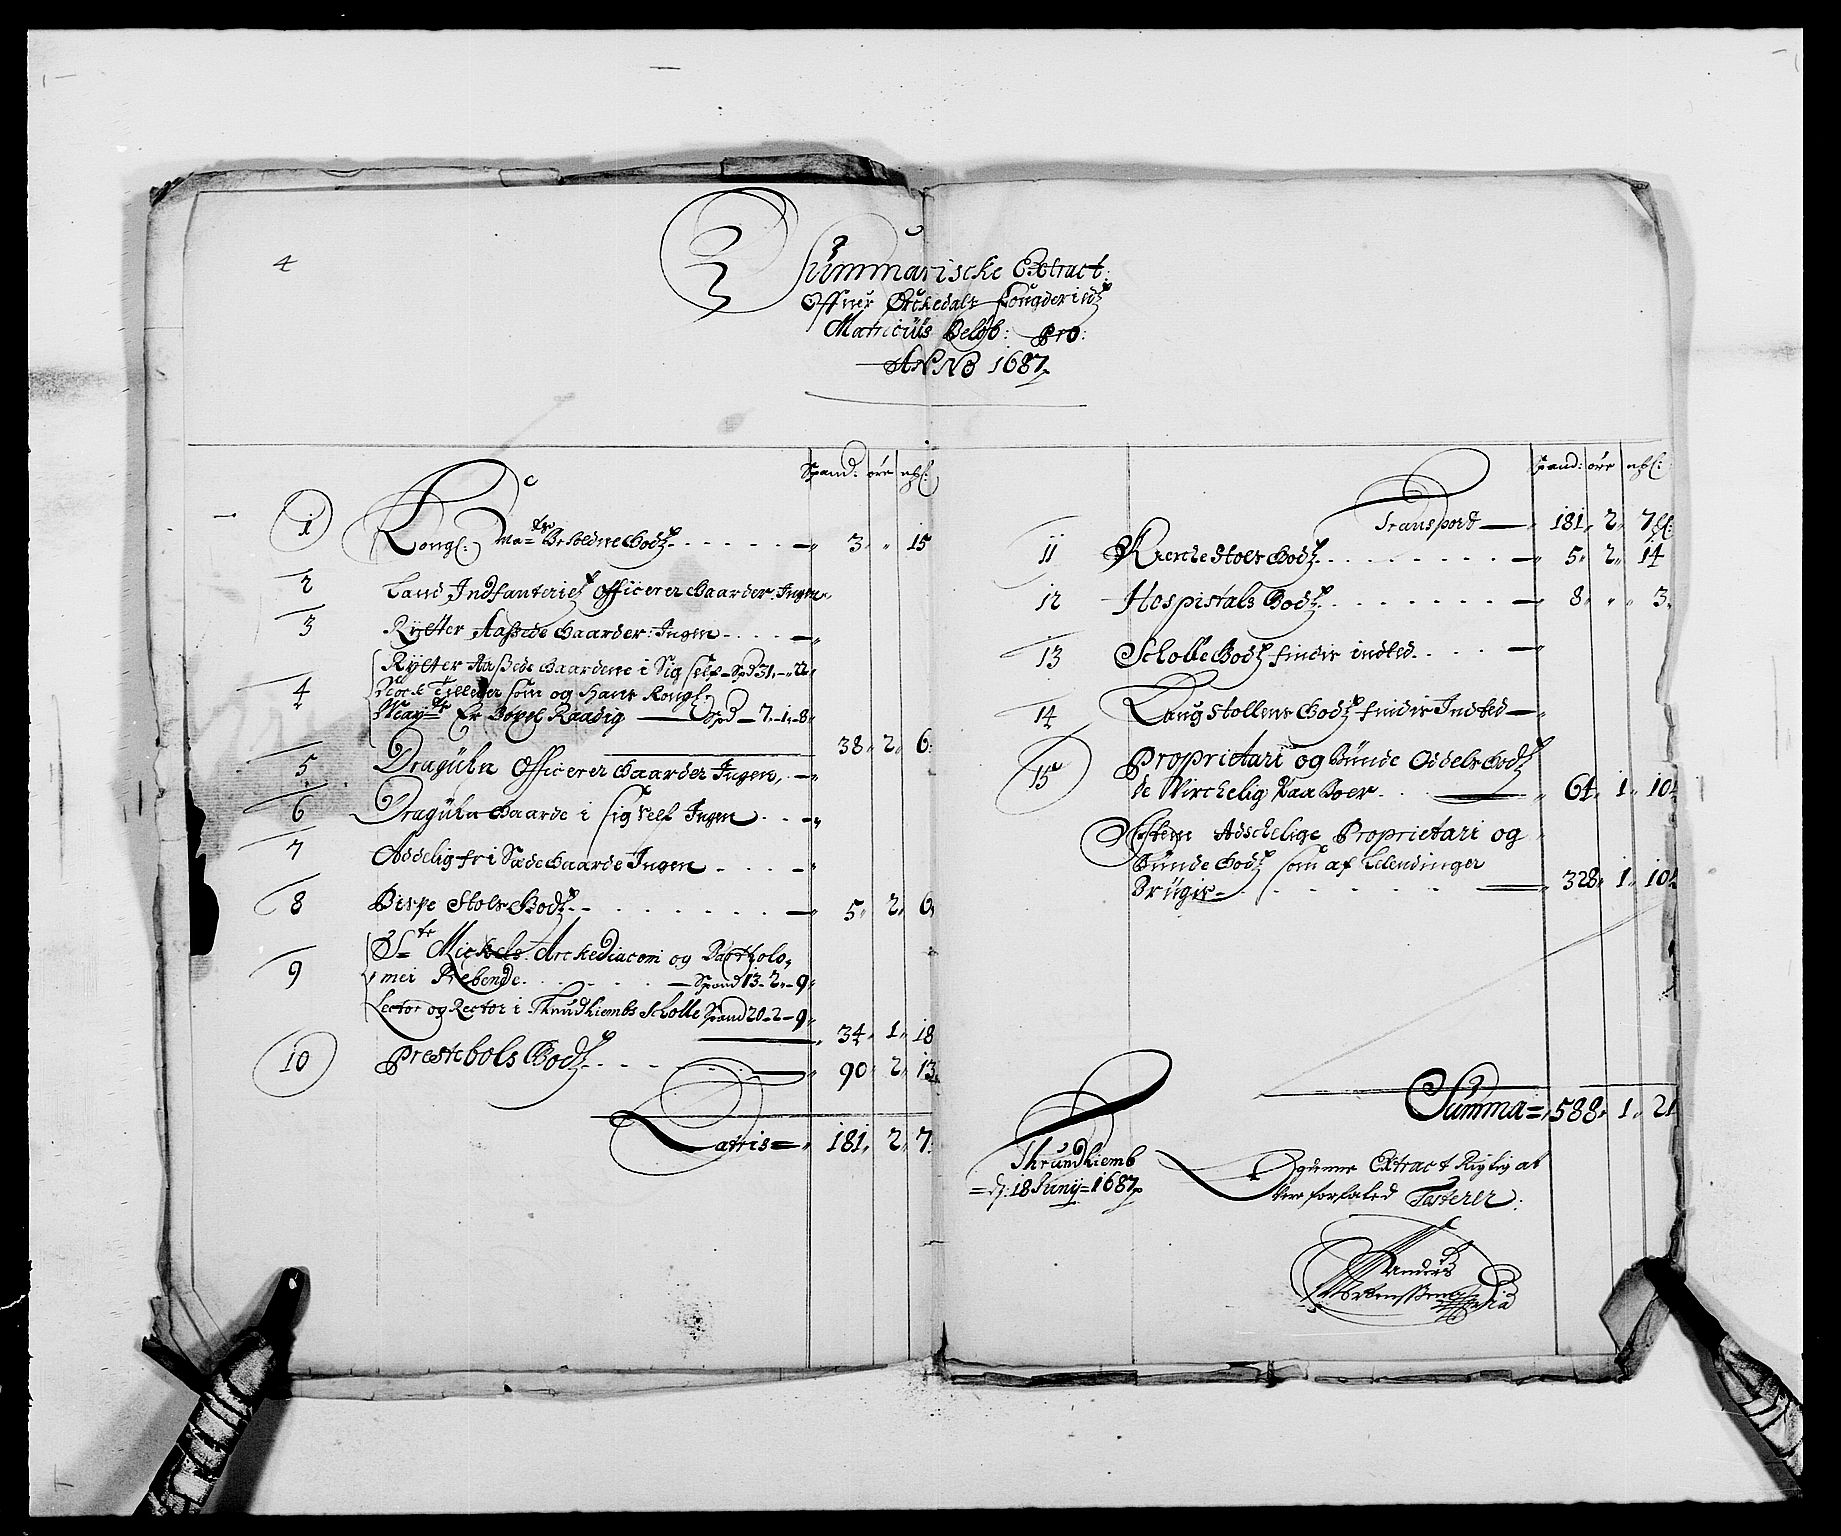 4
Summariscke Extract:
Offuer Orckedals fougderiedtz
Matriculs Beløb: Pro:
ANNO 1687
Spand: øre
1 Kongl: Ma=ts Beholdne Godtz - - - - - - 3 " 15
2 Land Indfanteriets Officerer Gaarder Ingen
3 Rytter Aassæde Gaarder: Ingen - - - -
4 Rytter Aasæde Gaardene i Sig self - Spd 31 - - 22
Noch Tillegger som og Hans Kongl:
May=ts Er Raadig - Spd - 7 - 1 - 8
38 2 6
5 Draguhn Officerer Gaarder Ingen
6 Draguhn Gaarde i sig self Ingen - - -
7 Addelig fri Sæde Gaarde Ingen - - - -
8 Bispe Stols Godtz - - - - - - 5 2 6
9 Ste Mickels Arckediaconi og Bartholo-
mei Prebende - - - - Spand 13 - 2 - 9
Lector og Rector i Thrundhiembs Scholle Spand 20 - 2 - 9
34 1 18
10 Prestebols Godtz - - - - - 90 2 13
Latris = 181 2 7
Spand: øre
Transport - 181 2 7
11 Kircke Stols Godtz - - - - - - 5 2 14
12 Hospitals Godtz - - - - - - 8 " 3
13 Scholle Godtz findis indted - - -
14 Laugstollens Godtz findis Indted -
15 Proprietari og Bunde Oddels Godtz
de Virckelig Raa Boer - - 64 1 10½
Adschelige Proprietari og
Bunde Godtz som af Leilendinger
Brugis - - - - - - 328 1 10½
Summa = 588 1 21
Thrundhiemb
d: 18 Junij = 1687
Extract Rigtig at
were forfated Testerer:
Anders